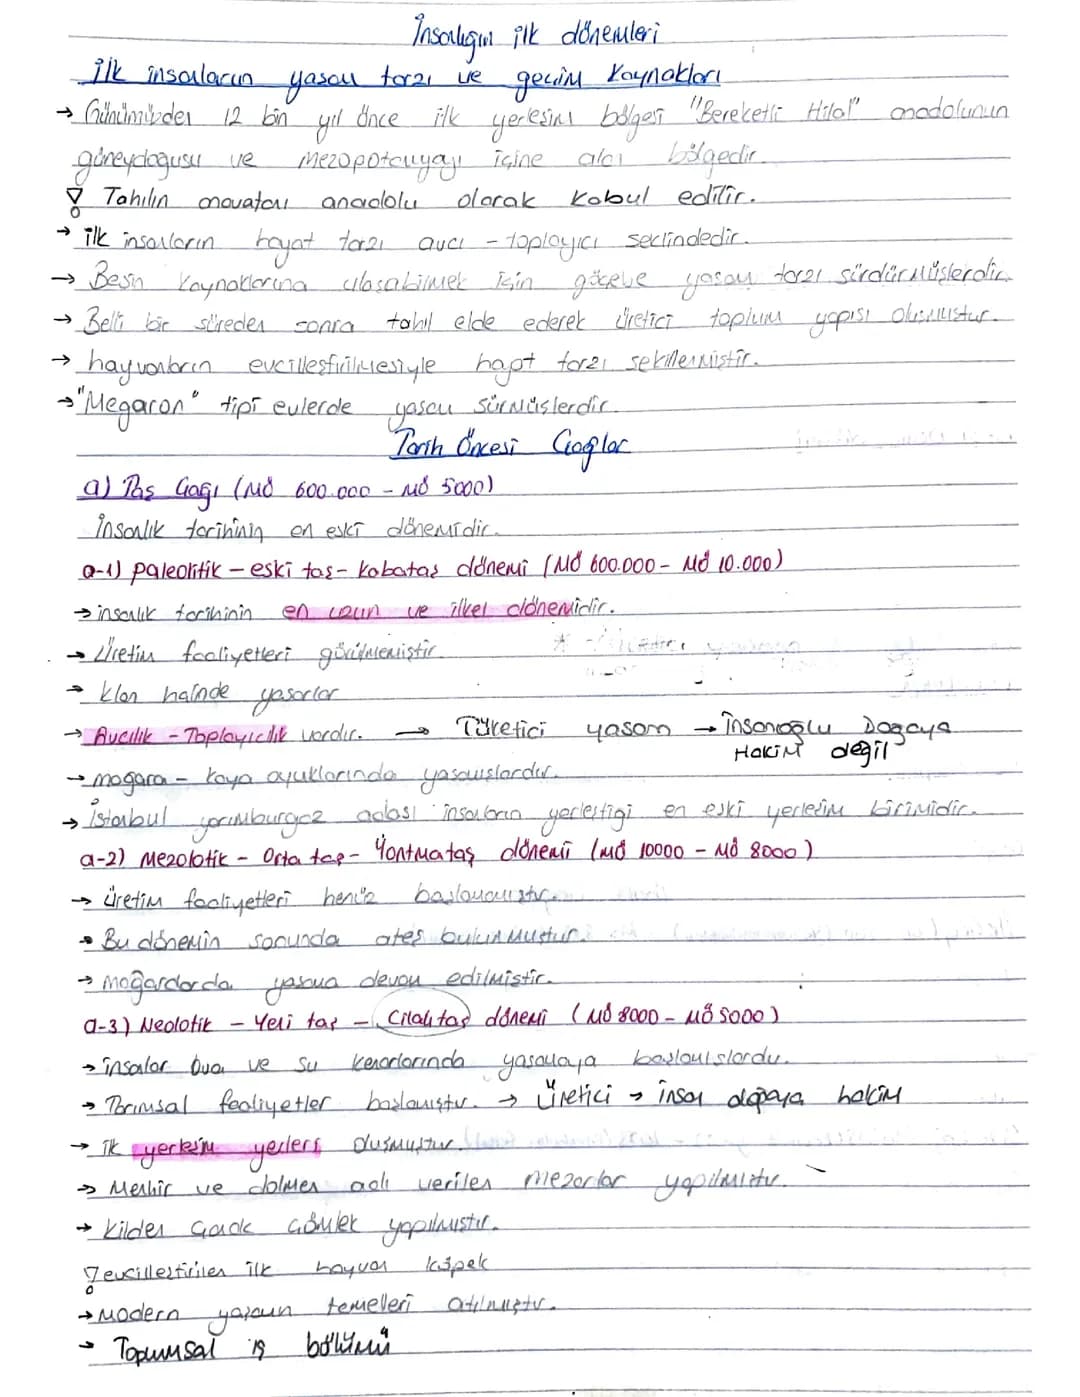 İnsanlığın ilk dönemleri
İlk insanların yaşam tarzı ve geçim kaynakları
→ Günümüzden 12 bin yıl önce ilk yerleşim bölgesi "Bereketli Hilal" anadolunun
güneydoğusu ve Mezopotamyayı içine alan bölgedir.
! Tahılın anavatanı anadolu olarak kabul edilir.
→ ilk insanların hayat tarzı avcı - toplayıcı şeklindedir.
→ Besin kaynaklarına ulaşabilmek için göçebe yaşam tarzı sürdürmüşlerdir.
→ Belli bir süreden sonra tahıl elde ederek üretici toplum yapısı oluşmuştur.
→ hayvanların evcilleştirilmesiyle hayat tarzı şekillenmiştir.
→ "Megaron" tipi evlerde yaşam sürmüşlerdir.
Tarih Öncesi Çağlar
a) Taş Çağı (MÖ 600.000 - MÖ 5000)
İnsanlık tarihinin en eski dönemidir.
a-1) paleolitik - eski taş - kabataş dönemi (MÖ 600.000 - MÖ 10.000)
→ insanlık tarihinin en uzun ve ilkel dönemidir.
→ Üretim faaliyetleri görülmemiştir.
→ klan halinde yaşarlar
→ Avcılık - Toplayıcılık vardır. → Tüketici yaşam → İnsanoğlu Doğaya
Hakim değil
→ mağara - kaya oyuklarında yaşamışlardır.
→ İstanbul yarımburgaz adası insanların yerleştiği en eski yerleşim birimidir.
a-2) Mezolotik - Orta taş - Yontmataş dönemi (MÖ 10000 - MÖ 8000)
→ üretim faaliyetleri henüz başlamamıştır.
→ Bu dönemin sonunda ateş bulunmuştur.
→ mağaralarda yaşama devam edilmiştir.
a-3) Neolotik - Yeni taş - Cilalı taş dönemi (MÖ 8000 - MÖ 5000)
→ insanlar ova ve su kenarlarında yaşamaya başlamışlardır.
→ Tarımsal faaliyetler başlamıştır. → Üretici → insan doğaya hakim
→ ilk yerleşim yerleri oluşmuştur.
→ Menhir ve dolmen adı verilen mezarlar yapılmıştır.
→ Kilden çanak çömlek yapılmıştır.
! evcilleştirilen ilk hayvan köpek
→ modern yaşamın temelleri atılmıştır.
→ Toplumsal iş bölümü